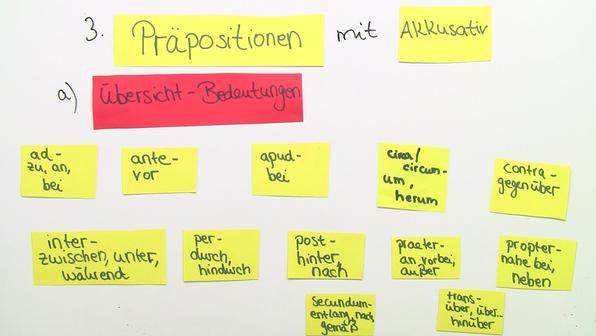 3. Präpositionen mit Akkusativ
a) Übersicht-Bedeutungen
ad-
zu, an,
bei
ante-
vor
apud-
bei
circa/
circum-
um,
herum
contra-
gegenüber
inter-
zwischen, unter,
während
per-
durch,
hindurch
post-
hinter,
nach
praeter-
an, vorbei,
außer
propter-
nahe bei,
neben
secundum-
entlang, nach
gemäß
trans-
über, über...
hinüber